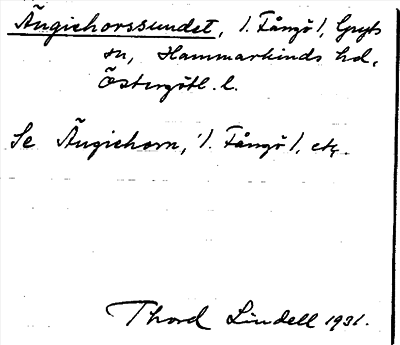 Ängiehorssundet, /. Fångö /, Gryts
sn, Hammarkinds hd,
Östergötl. l.
Se Ängiehorn, /. Fångö /, etc.
Thord Lindell 1931.